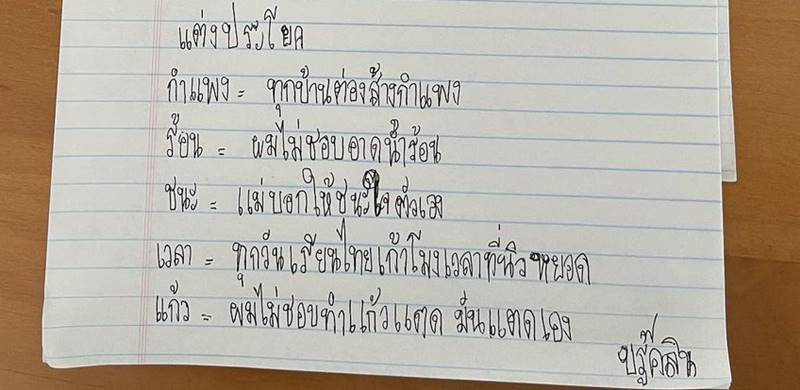 แต่งประโยค
กำแพง = ทุกบ้านต่องส้างกำแพง
ร้อน = ผมไม่ชอบอาดน้ำร้อน
ชนะ = แม่บอกให้ชนะใจตัวเอง
เวลา = ทุกวันเรียนไทยเก้าโมงเวลาที่นิวหยอด
แก้ว = ผมไม่ชอบทำแก้วแตด มันแตดเอง
บรู๊คลิน